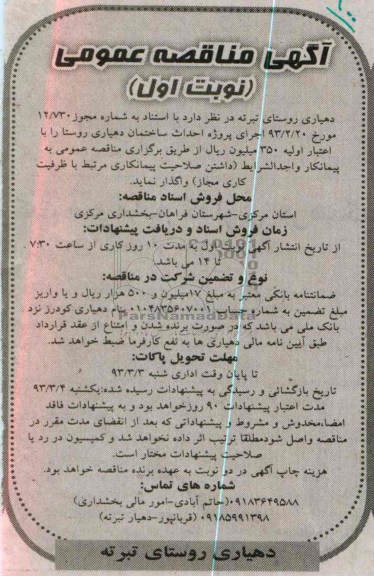 آگهی مناقصه عمومی
(نوبت اول)
دهیاری روستای تبرته در نظر دارد با استناد به شماره مجوز ۱۲/۷۳۰
مورخ ۹۳/۲/۲۰ اجرای پروژه احداث ساختمان دهیاری روستا را با
اعتبار اولیه ۳۵۰ میلیون ریال از طریق برگزاری مناقصه عمومی به
پیمانکار واجدالشرایط (داشتن صلاحیت پیمانکاری مرتبط با ظرفیت
کاری مجاز) واگذار نماید.
محل فروش اسناد مناقصه:
استان مرکزی-شهرستان فراهان-بخشداری مرکزی
زمان فروش اسناد و دریافت پیشنهادات:
از تاریخ انتشار آگهی نوبت اول به مدت ۱۰ روز کاری از ساعت ۷:۳۰
تا ۱۴ می باشد.
نوع و تضمین شرکت در مناقصه:
ضمانتنامه بانکی معتبر به مبلغ ۱۷میلیون و ۵۰۰ هزار ریال و یا واریز
مبلغ تضمین به شماره حساب ۰۱۰۴۸۳۵۶۰۷۰۰۱ بنام دهیاری کودرز نزد
بانک ملی می باشد که در صورت برنده شدن و امتناع از عقد قرارداد
طبق آیین نامه مالی دهیاری ها به نفع کارفرما ضبط خواهد شد.
مهلت تحویل پاکات:
تا پایان وقت اداری شنبه ۹۳/۳/۳
تاریخ بازگشائی و رسیدگی به پیشنهادات رسیده شده:یکشنبه ۹۳/۳/۴
مدت اعتبار پیشنهادات ۹۰ روزخواهد بود و به پیشنهادات فاقد
امضاء،مخدوش و مشروط و پیشنهاداتی که بعد از انقضای مدت مقرر در
مناقصه واصل شودمطلقا ترتیب اثر داده نخواهد شد و کمیسیون در رد یا
صلاحیت پیشنهادات مختار است.
هزینه چاپ آگهی در دو نوبت به عهده برنده مناقصه خواهد بود.
شماره های تماس:
۰۹۱۸۳۶۴۹۵۸۸(حاتم آبادی-امور مالی بخشداری)
۰۹۱۸۵۹۹۱۳۹۸ (قربانپور-دهیار تبرته)
دهیاری روستای تبرته